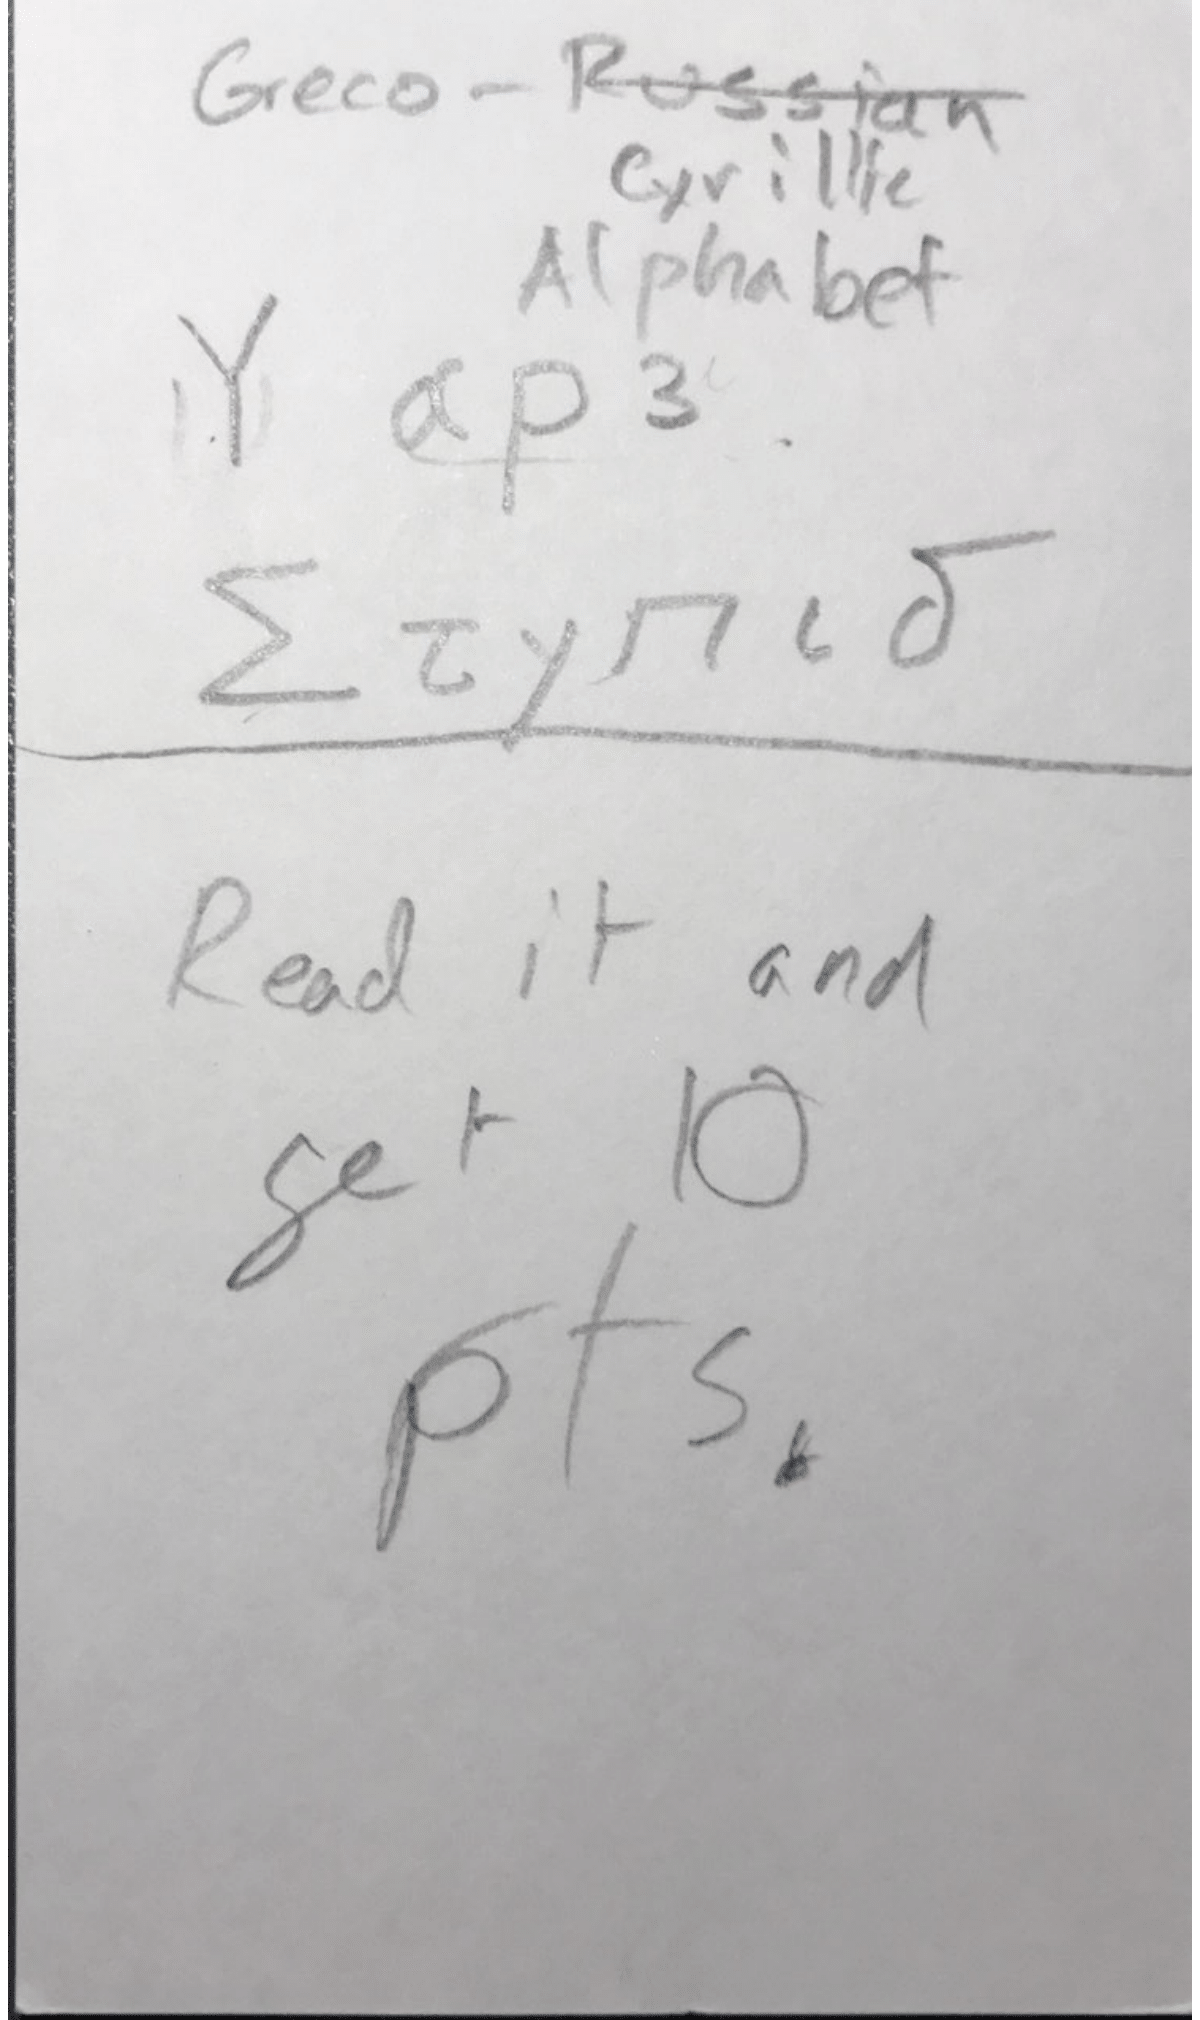 Greco - Russian
Cyrillic
Alphabet
Υ αρ з.
Στγπιδ
Read it and
get 10
pts.